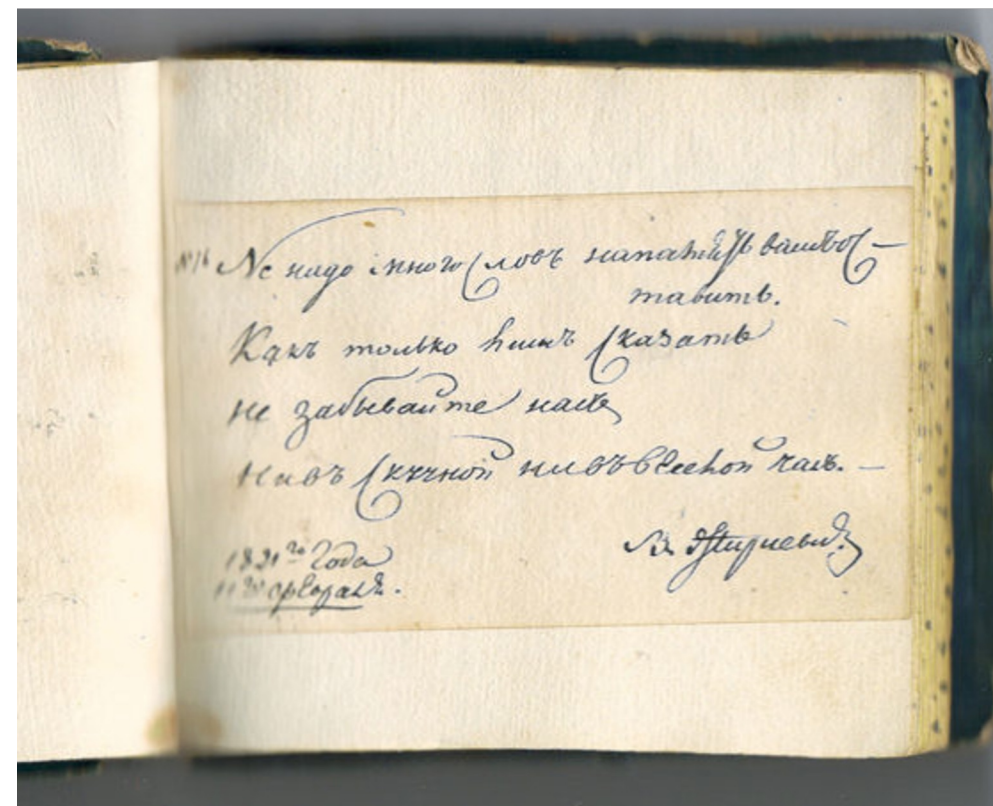 № 16 Не надо много словъ напамять вамъ ос-
тавить.
Какъ только лишъ сказать
не забывайте насъ
Нивъ скучной нивъ веселой часъ. —
1821го Года
11го февраля.